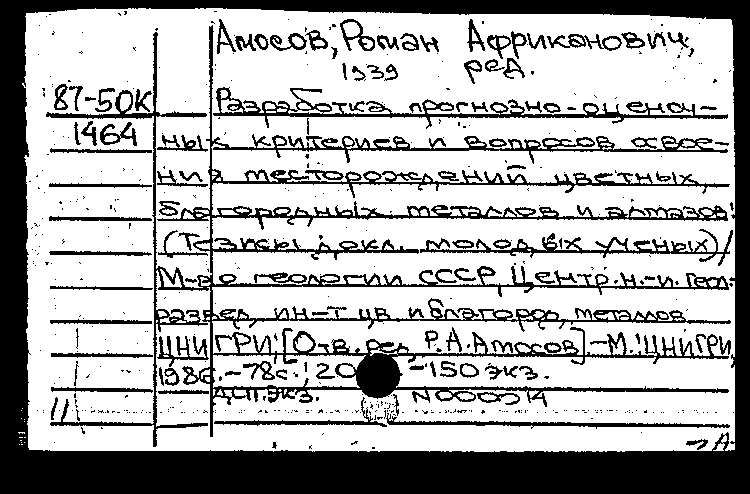 Амосов, Роман Африканович,
1939 ред.
87-50К Разработка прогнозно-оценоч-
1464 ных критериев и вопросов освое-
ния месторождений цветных,
благородных металлов и алмазов:
(Тезисы докл. молодых ученых)/
М-во геологии СССР, Центр. н.-и. геол.-
развед. ин-т цв. и благород. металлов
ЦНИГРИ; [Отв. ред. Р.А.Амосов].-М.: ЦНИГРИ,
1986.-78с.; 20 -150 экз.
ДСП.экз. N000014
11
→ А